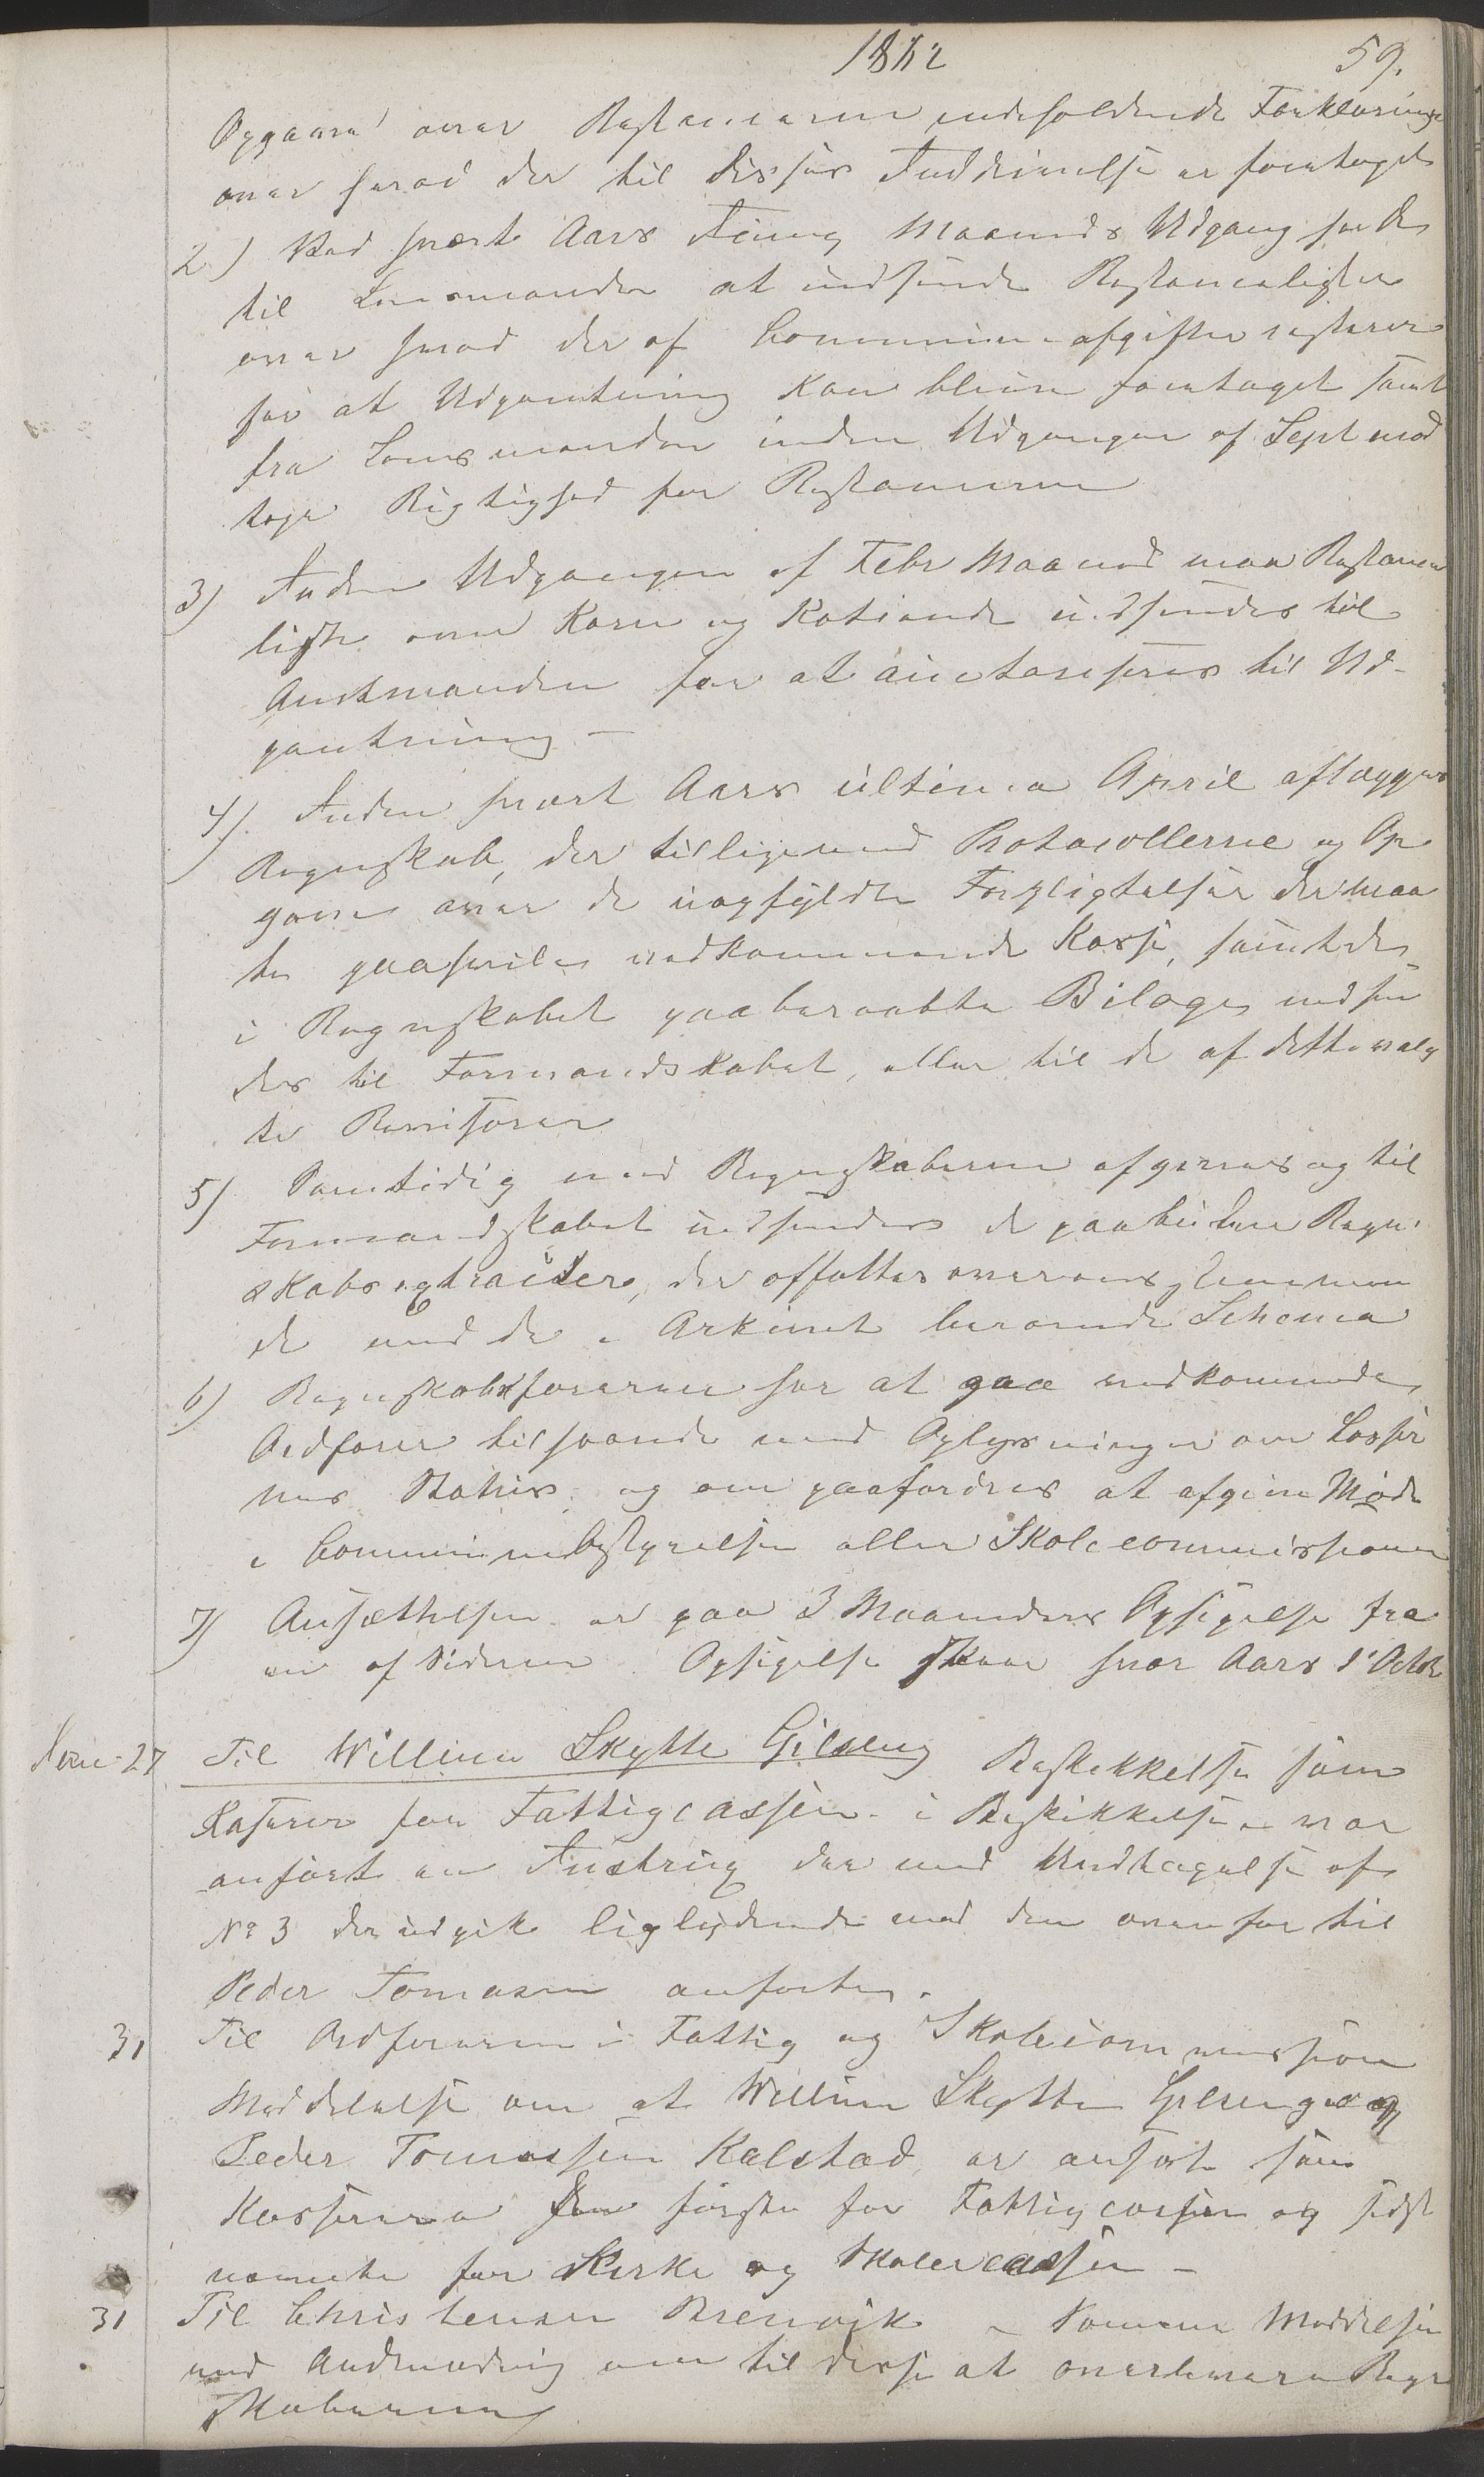 1872 59.
Opgaver over Restancerne indeholdende Forklaringe
over hvad der til disses Inddrivelse er foretaget
2) Ved hvert Aars Maaneds Udgang
til Lensmanden at indsende Restancelister
over hvad der af Communeafgifter resterer
for at Udpantning kan blive foretaget samt
fra Lensmanden inden Udgangen af Sept mod
tage Rigtighed for Restancerne
3) Inden Udgangen af Febr Maaned maa Restance
liste over Korn og Kotiende indsendes til
Amtmanden for at auctoriseres til Ud-
pantning –
4) Inden hvert Aars ultimo April aflægges
Regnskab, der tilligemed Protocollerne og Op
gave over de uopfyldte Forpligtelser der maa
tte paahvile vedkommende Kasse, samt de
i Regnskabet paaberaabte Bilage, indsen
des til Formandskabet, eller til de af dette valg
te Revisorer
5) Samtidig med Regnskaberne afgives og til
Formandskabet indsendes de paabudne Regn-
skabsextracter, der affattes overensstemmen
de med de i Arkivet beroende Schema
6) Regnskabsførerne har at gaa vedkommende
Ordfører tilhaande med Oplysninger om Casser
nes Status, og om paafordres at afgive Møde
i Communebestyrelsen eller Skolecommissionen
7) Ansættelsen er paa 3 Maaneders Opsigelse fra
en af Siderne. Opsigelse skeer hver Aars 1 Octob
27 Til Willum Skytte Gilseng Beskikkelse som
Kasserer for Fattigcassen – i Beskikkelsen var
anført en Instrux der med Undtagelse af
No 3 der udgik liglydende med den ovenfor til
Peder Tomasen anførte.
31 Til Ordføreren i Fattig og Skolecommission
Meddelelse om at Willum Skytte Gilseng og
Peder Tomassen Kalstad er ansat som
Kasserere den første for Fattigcassen og sidst
nævnte for Kirke og Skolecassen –
31 Til Christensen Brenvik – Samme Meddelse
med Anmodning om til disse at overlevere Regn
skaberne